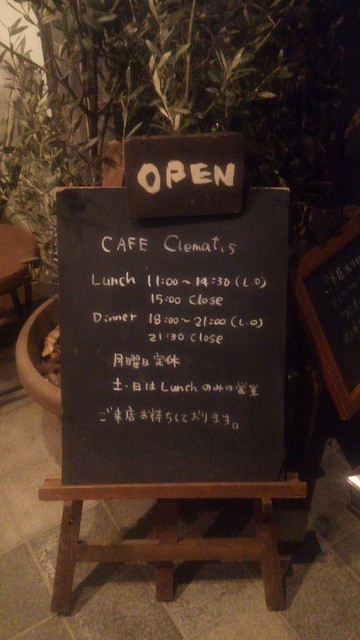 OPEN
CAFE Clematis
Lunch 11:00〜14:30 (L.O)
15:00 Close
Dinner 18:00〜21:00 (L.O)
21:30 Close
月曜日定休
土・日はLunchのみの営業
ご来店お待ちしております。